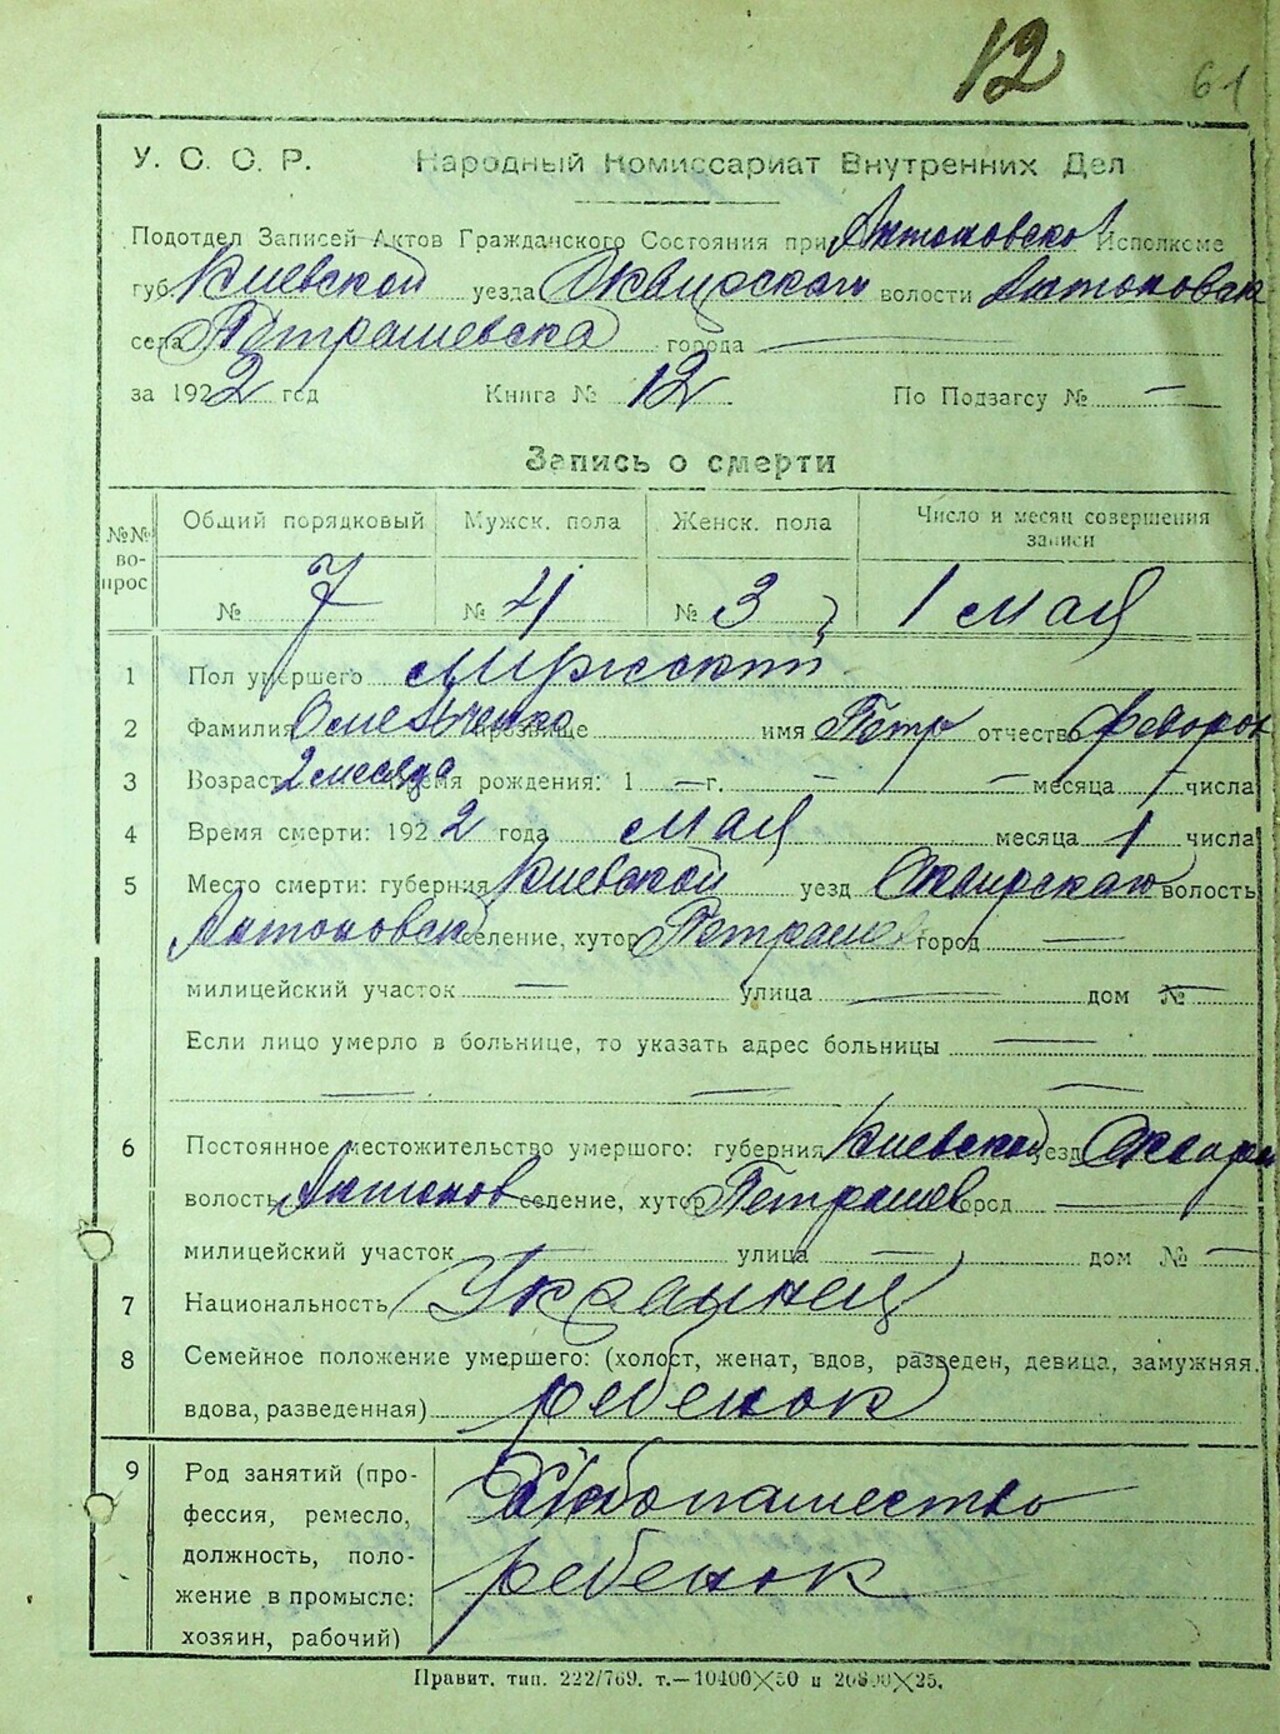 12 61
У. С. С. Р. Народный Комиссариат Внутренних Дел
Подотдел Записей Актов Гражданского Состояния при Антоновско Исполкоме
губ. Киевской уезда Сквирскаго волости Антоновск
села Петрашевска города —
за 1922 год Книга № 12 По Подзагсу № —
Запись о смерти
№№ вопрос Общий порядковый Мужск. пола Женск. пола Число и месяц совершения записи
№ 7 № 4 № 3 1 мая
1 Пол умершего мужской
2 Фамилия прозвище имя Петр отчество Федоров
3 Возраст 2 месяца Время рождения: 1 — г. — — месяца — числа
4 Время смерти: 1922 года мая месяца 1 числа
5 Место смерти: губерния Киевской уезд Сквирскаго волость
Антоновск селение, хутор Петрашев город —
милицейский участок — улица — дом № —
Если лицо умерло в больнице, то указать адрес больницы —
— — —
6 Постоянное местожительство умершего: губерния Киевской уезд Сквирс
волость Антонов селение, хутор Петрашев город —
милицейский участок — улица — дом № —
7 Национальность Украинец
8 Семейное положение умершего: (холост, женат, вдов, разведен, девица, замужняя,
вдова, разведенная) ребенок
9 Род занятий (про-
фессия, ремесло, Хлебопашество
должность, поло-
жение в промысле: ребенок
хозяин, рабочий)
Правит. тип. 222/769. т.—10400×50 и 20800×25.